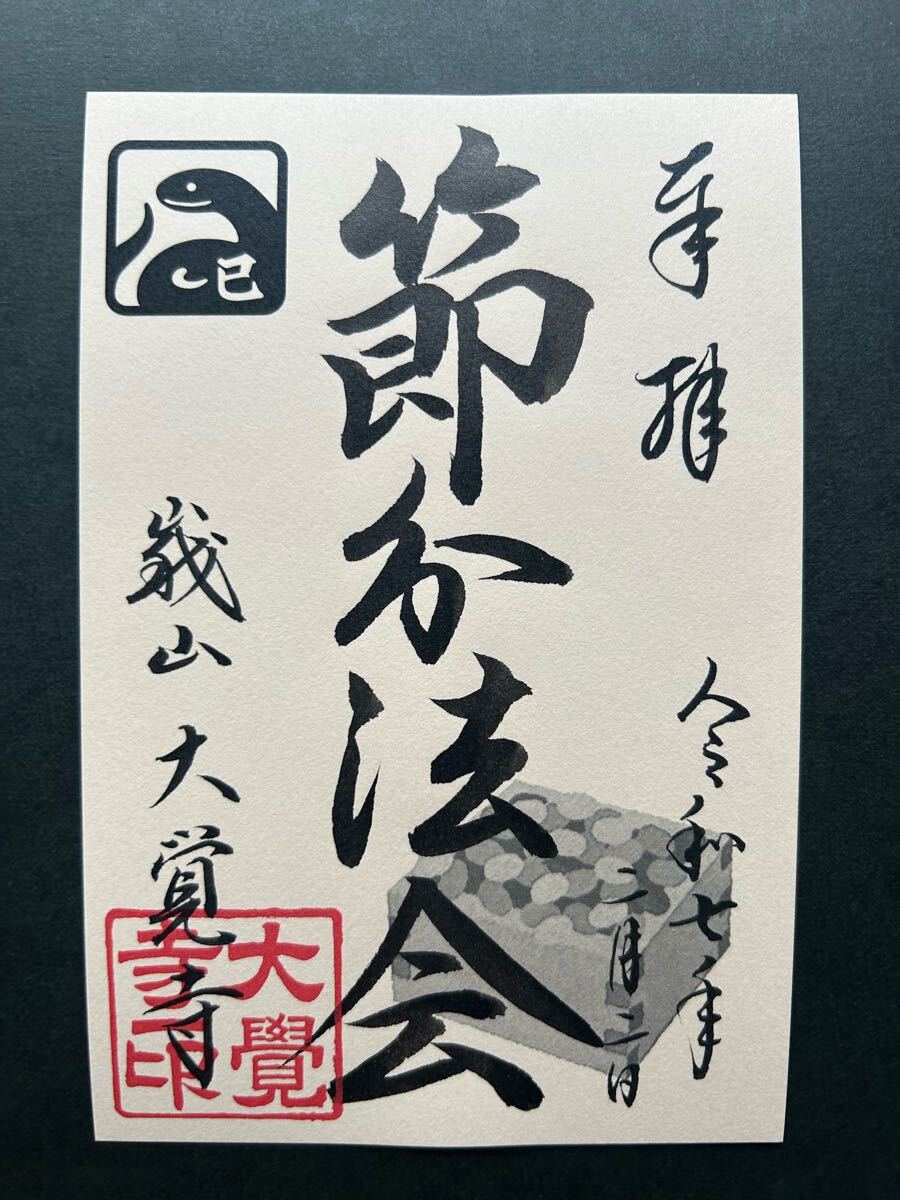 奉拝
令和七年
二月二日
節分法会
巳
嵯山 大覚寺
大覺
寺印